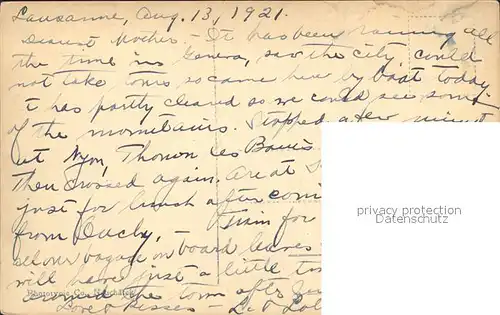 Lausanne, Aug. 13, 1921.
Dearest Mother - It has been raining all
the time in Geneva, saw the city, could
not take tours so came here by boat today.
it has partly cleared so we could see some
of the mountains. Stopped a few minut
at Nyon, Thonon les Bains
then crossed again. Are at
just for lunch after comi
from Ouchy, - Train for
all our bagage on board leaves
will have just a little
around the town after
Love & Kisses -
privacy protection
Datenschutz
Phototypie Co., Neuchâtel